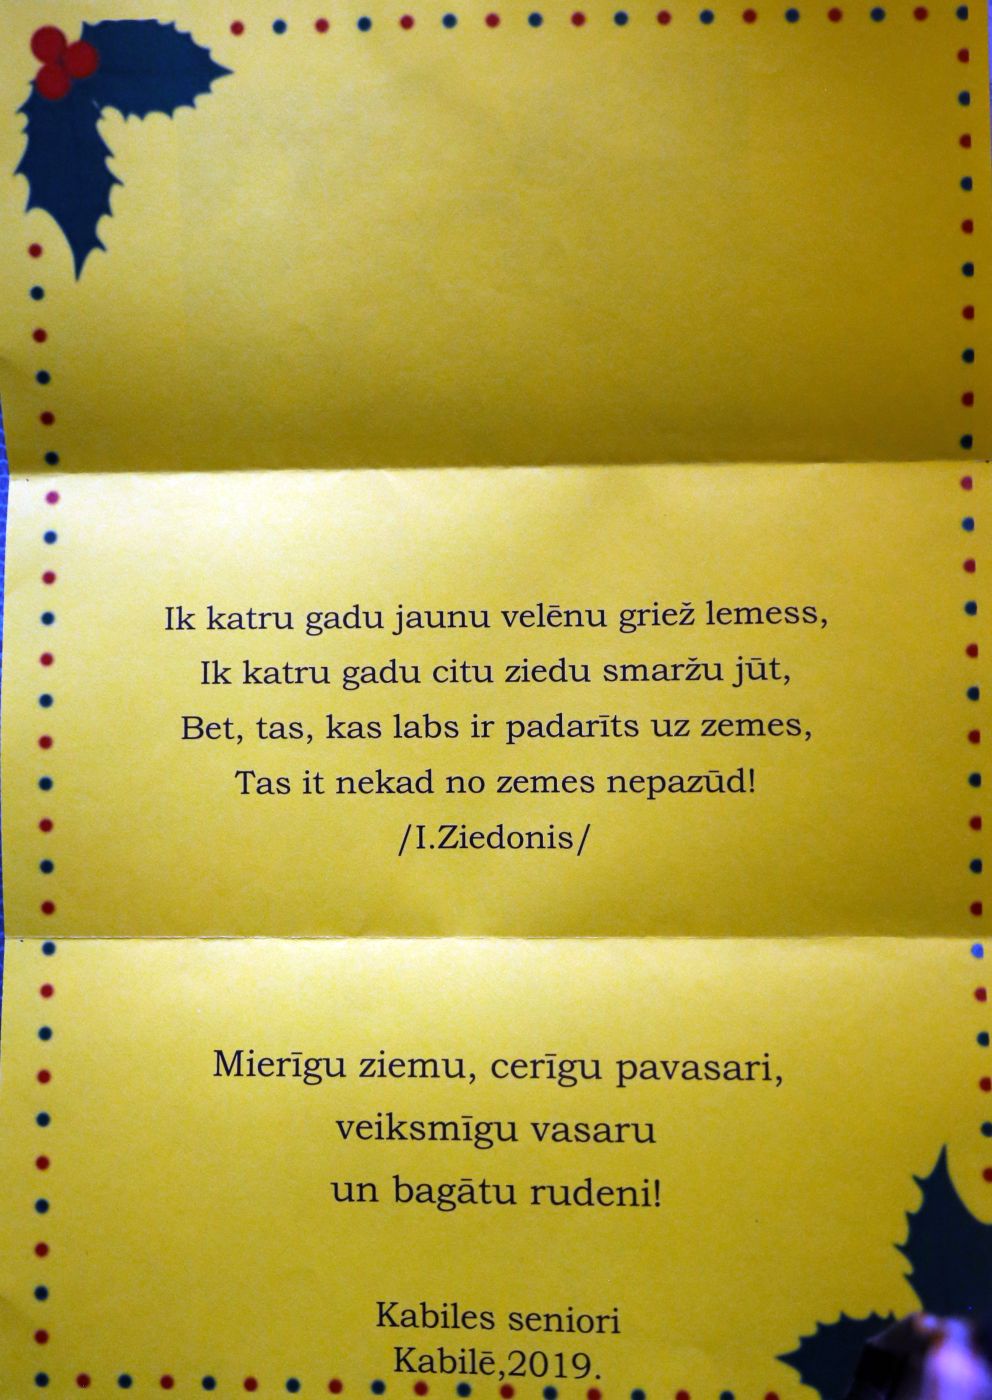 Ik katru gadu jaunu velēnu griež lemess,
Ik katru gadu citu ziedu smaržu jūt,
Bet, tas, kas labs ir padarīts uz zemes,
Tas it nekad no zemes nepazūd!
/I.Ziedonis/
Mierīgu ziemu, cerīgu pavasari,
veiksmīgu vasaru
un bagātu rudeni!
Kabiles seniori
Kabilē,2019.